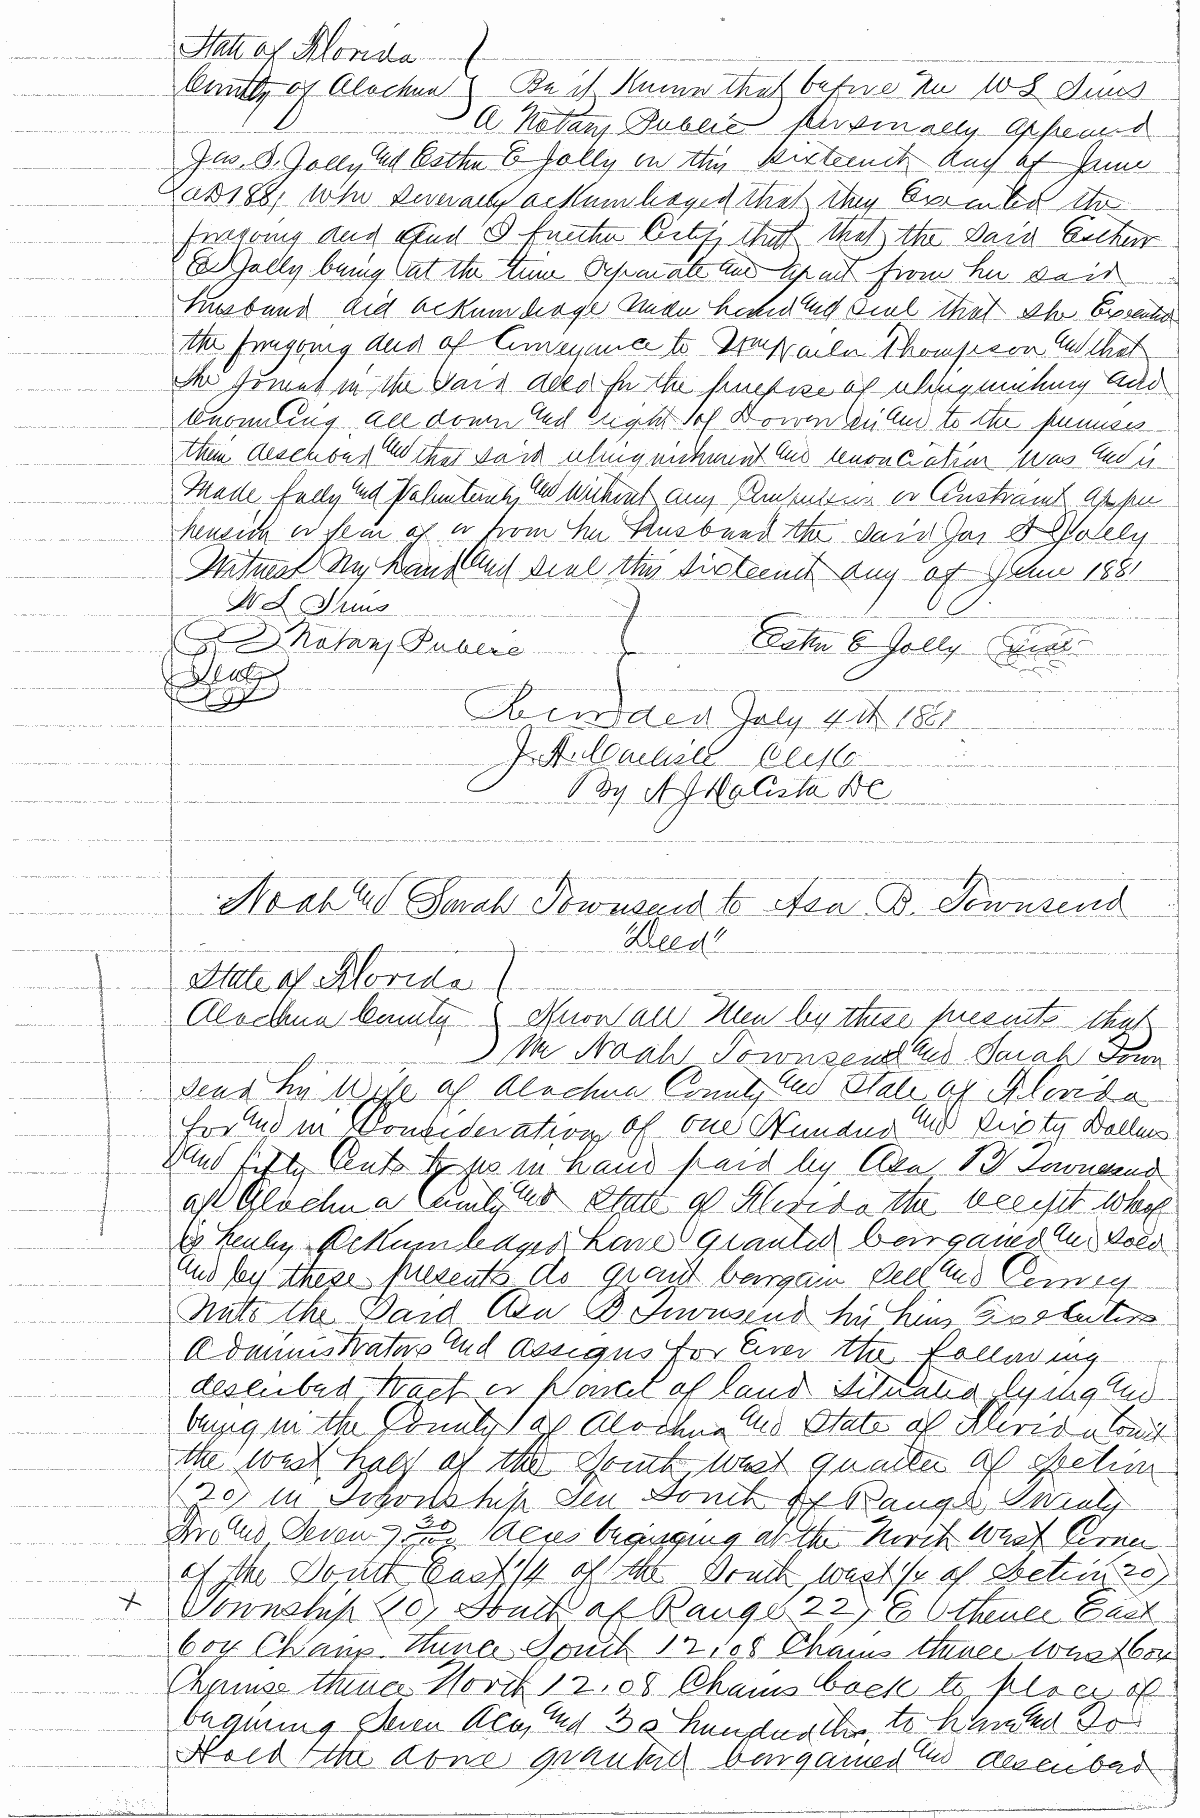 State of Florida
County of Alachua } Be it Known that before Me W S Sims
A Notary Public personally appeared
Jas. S. Jolly and Esther E Jolly on this sixteenth day of June
AD 1881 who severally acknowledged that they Executed the
foregoing deed and I further Certify that that the said Esther
E Jolly being at the time separate and apart from her said
husband did acknowledge under hand and seal that she Executed
the foregoing deed of Conveyance to Thompson and that
she joined in the said deed for the purpose of relinquishing and
renouncing all dower and right of Dower in and to the premises
therein described and that said relinquishment and renunciation was and is
Made fully and Voluntarily and without any Compulsion or Constraint appre
hension or fear of or from her Husband the said Jas S Jolly
Witness My hand and seal this sixteenth day of June 1881
W S Sims
Notary Public } Esther E Jolly Seal
Seal
Recorded July 4th 1881
J. A. Carlisle Clerk
By A J DaCosta DC
Noah and Sarah Townsend to Asa B. Townsend
"Deed"
State of Florida
Alachua County } Know all Men by these presents that
We Noah Townsend and Sarah Town
send his Wife of Alachua County and State of Florida
for and in Consideration of one Hundred and Sixty Dollars
and fifty Cents to us in hand paid by Asa B Townsend
of Alachua County and State of Florida the receipt whereof
is hereby Acknowledged have granted bargained and sold
and by these presents do grant bargain Sell and Convey
unto the Said Asa B Townsend his heirs Executors
Administrators and assigns for Ever the following
described tract or Parcel of land situated lying and
being in the County of Alachua and State of Florida towit
the west half of the South west quarter of Section
(20) in Township Ten South of Range Twenty
Two and Seven 7 30/100 Acres begining at the North West Corner
of the South East 1/4 of the South west 1/4 of Section 20)
x Township (10) South of Range (22) E thence East
604 Chains thence South 12.08 Chains thence West 604
Chains thence North 12.08 Chains back to place of
begining Seven Acres and 30 hundredths, to have and To
Hold the above granted bargained and described